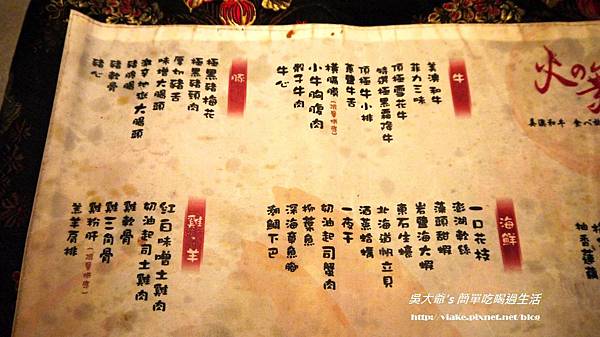 火の
美澳和牛 食べ
牛
美澳和牛
菲力三味
頂極雪花牛
特選極黑霜降牛
頂極牛小排
蔥鹽牛舌
橫膈膜(限量供應)
小牛胸腹肉
骰子牛肉
牛心
豚
極黑豬梅花
極黑豬頸肉
厚切豬舌
味噌大腸頭
激辛大腸頭
豬軟骨
豬心
海鮮
一口花枝
澎湖軟絲
藻頭甜蝦
岩鹽海大蝦
東石生蠔
北海道帆立貝
酒蒸蛤蠣
一夜干
奶油起司蟹肉
柳葉魚
深海章魚腳
潮鯛下巴
雞、羊
紅白味噌土雞肉
奶油起司土雞肉
雞軟骨
雞三角骨
雞粉肝(限量供應)
羔羊肩排
柚香蓮藕
吳大爺's 簡單吃喝過生活
http://vlake.pixnet.net/blog